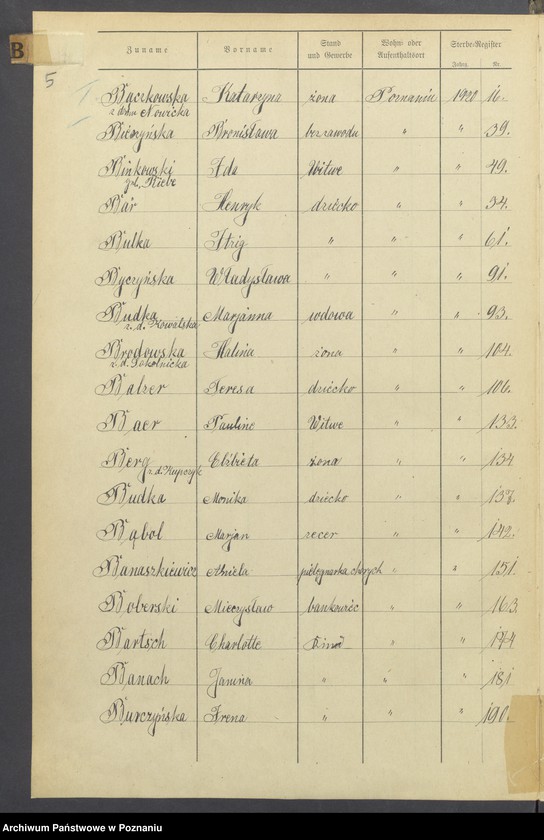 B
5
Zuname Vorname Stand und Gewerbe Wohn- oder Aufenthaltsort Sterbe-Register Jahrg. Nr.
Bączkowska Katarzyna żona Poznaniu 1920 16.
z domu Nowicka
Bieżyńska Bronisława bez zawodu " " 39.
Binkowski Ida Witwe " " 49.
geb. Stiebe
Bär Henryk dziecko " " 54.
Bulka " " " 61.
Byczyńska Władysława " " " 91.
Budka Marjanna wdowa " " 93.
z. d. Kowalska
Brodowska Halina żona " " 104.
z. d. Sokolnicka
Balzer Teresa dziecko " " 106.
Baer Pauline Witwe " " 133.
Berg Elżbieta żona " " 134
z d. Kupczyk
Budka Monika dziecko " " 137.
Bąbol Marjan zecer " " 142.
Banaszkiewicz Aniela pielęgniarka chorych " " 151.
Boberski Mieczysław bankowiec " " 163
Bartsch Charlotte Kind " " 174
Banach Janina " " " 181
Burczyńska Irena " " " 190.
Archiwum Państwowe w Poznaniu